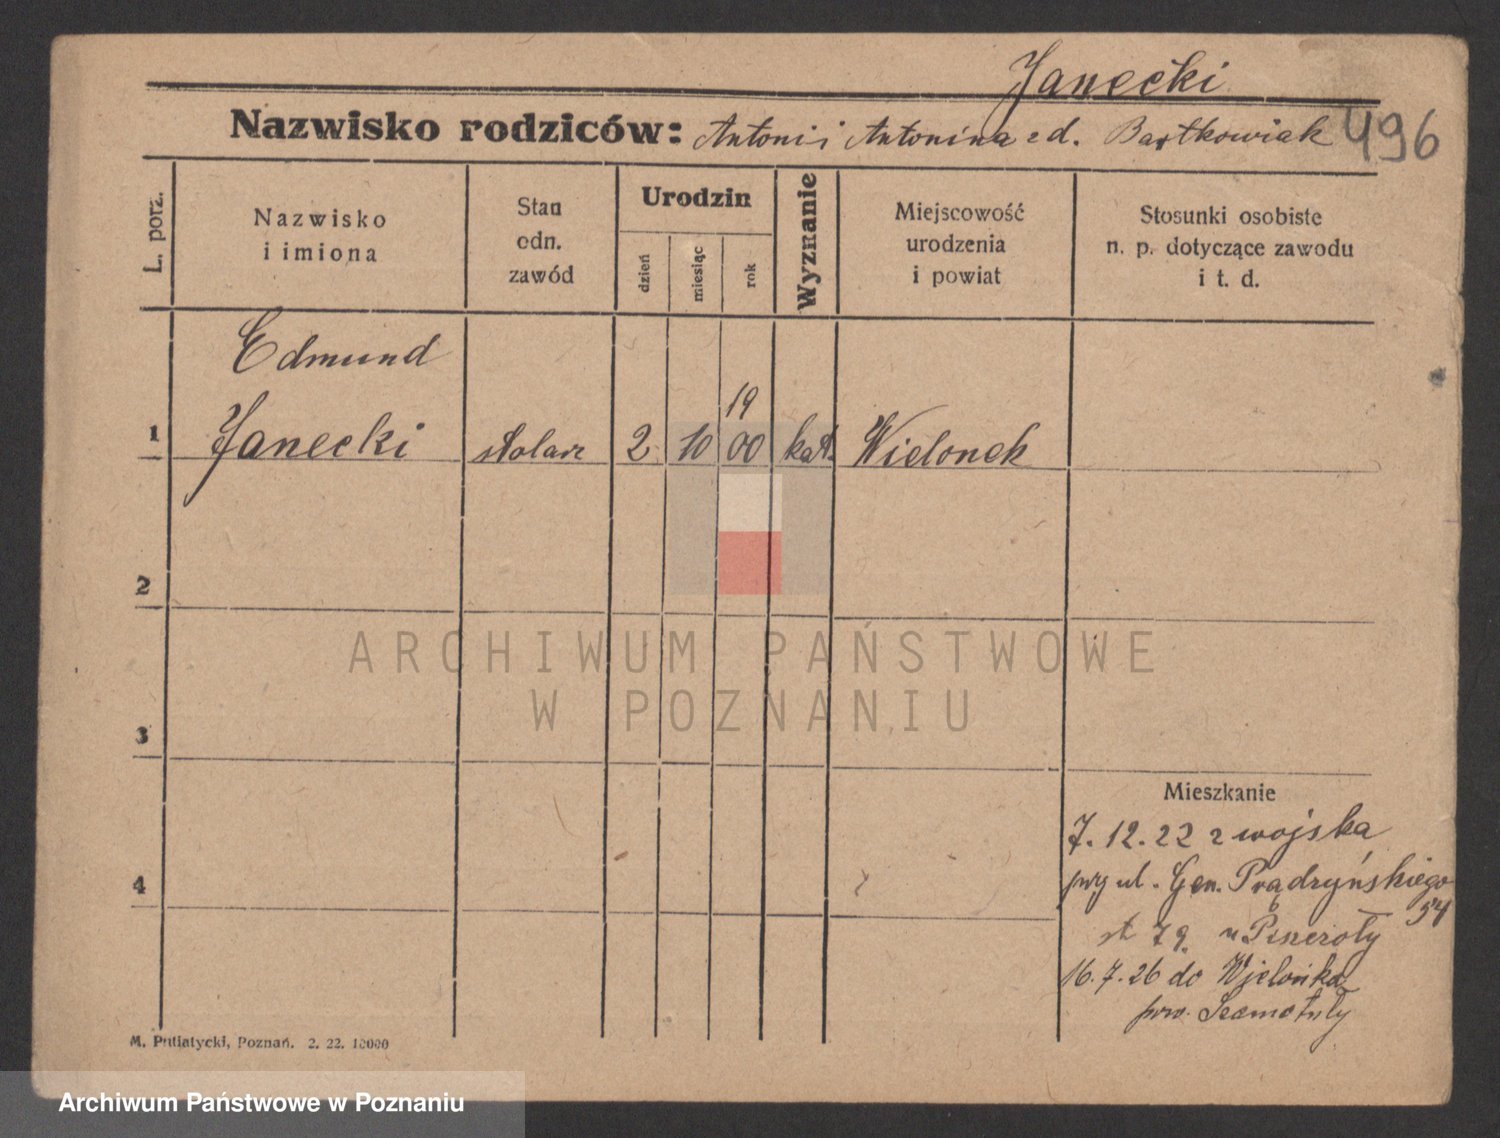 Janecki
Nazwisko rodziców: Antoni i Antonina z d. Bartkowiak 496
L. porz.
Nazwisko
i imiona
Stan
odn.
zawód
Urodzin
dzień
miesiąc
rok
Wyznanie
Miejscowość
urodzenia
i powiat
Stosunki osobiste
n. p. dotyczące zawodu
i t. d.
Edmund
19
1 Janecki stolarz 2 10 00 kat. Wielonek
2
3
4
Mieszkanie
7. 12. 22 z wojska
przy ul. Gen. Prądzyńskiego
54
st 79. u
16. 7. 26 do Wielonka
pow. Szamotuły
M. Putiatycki, Poznań. 2. 22. 10000
ARCHIWUM PAŃSTWOWE
W POZNANIU
Archiwum Państwowe w Poznaniu